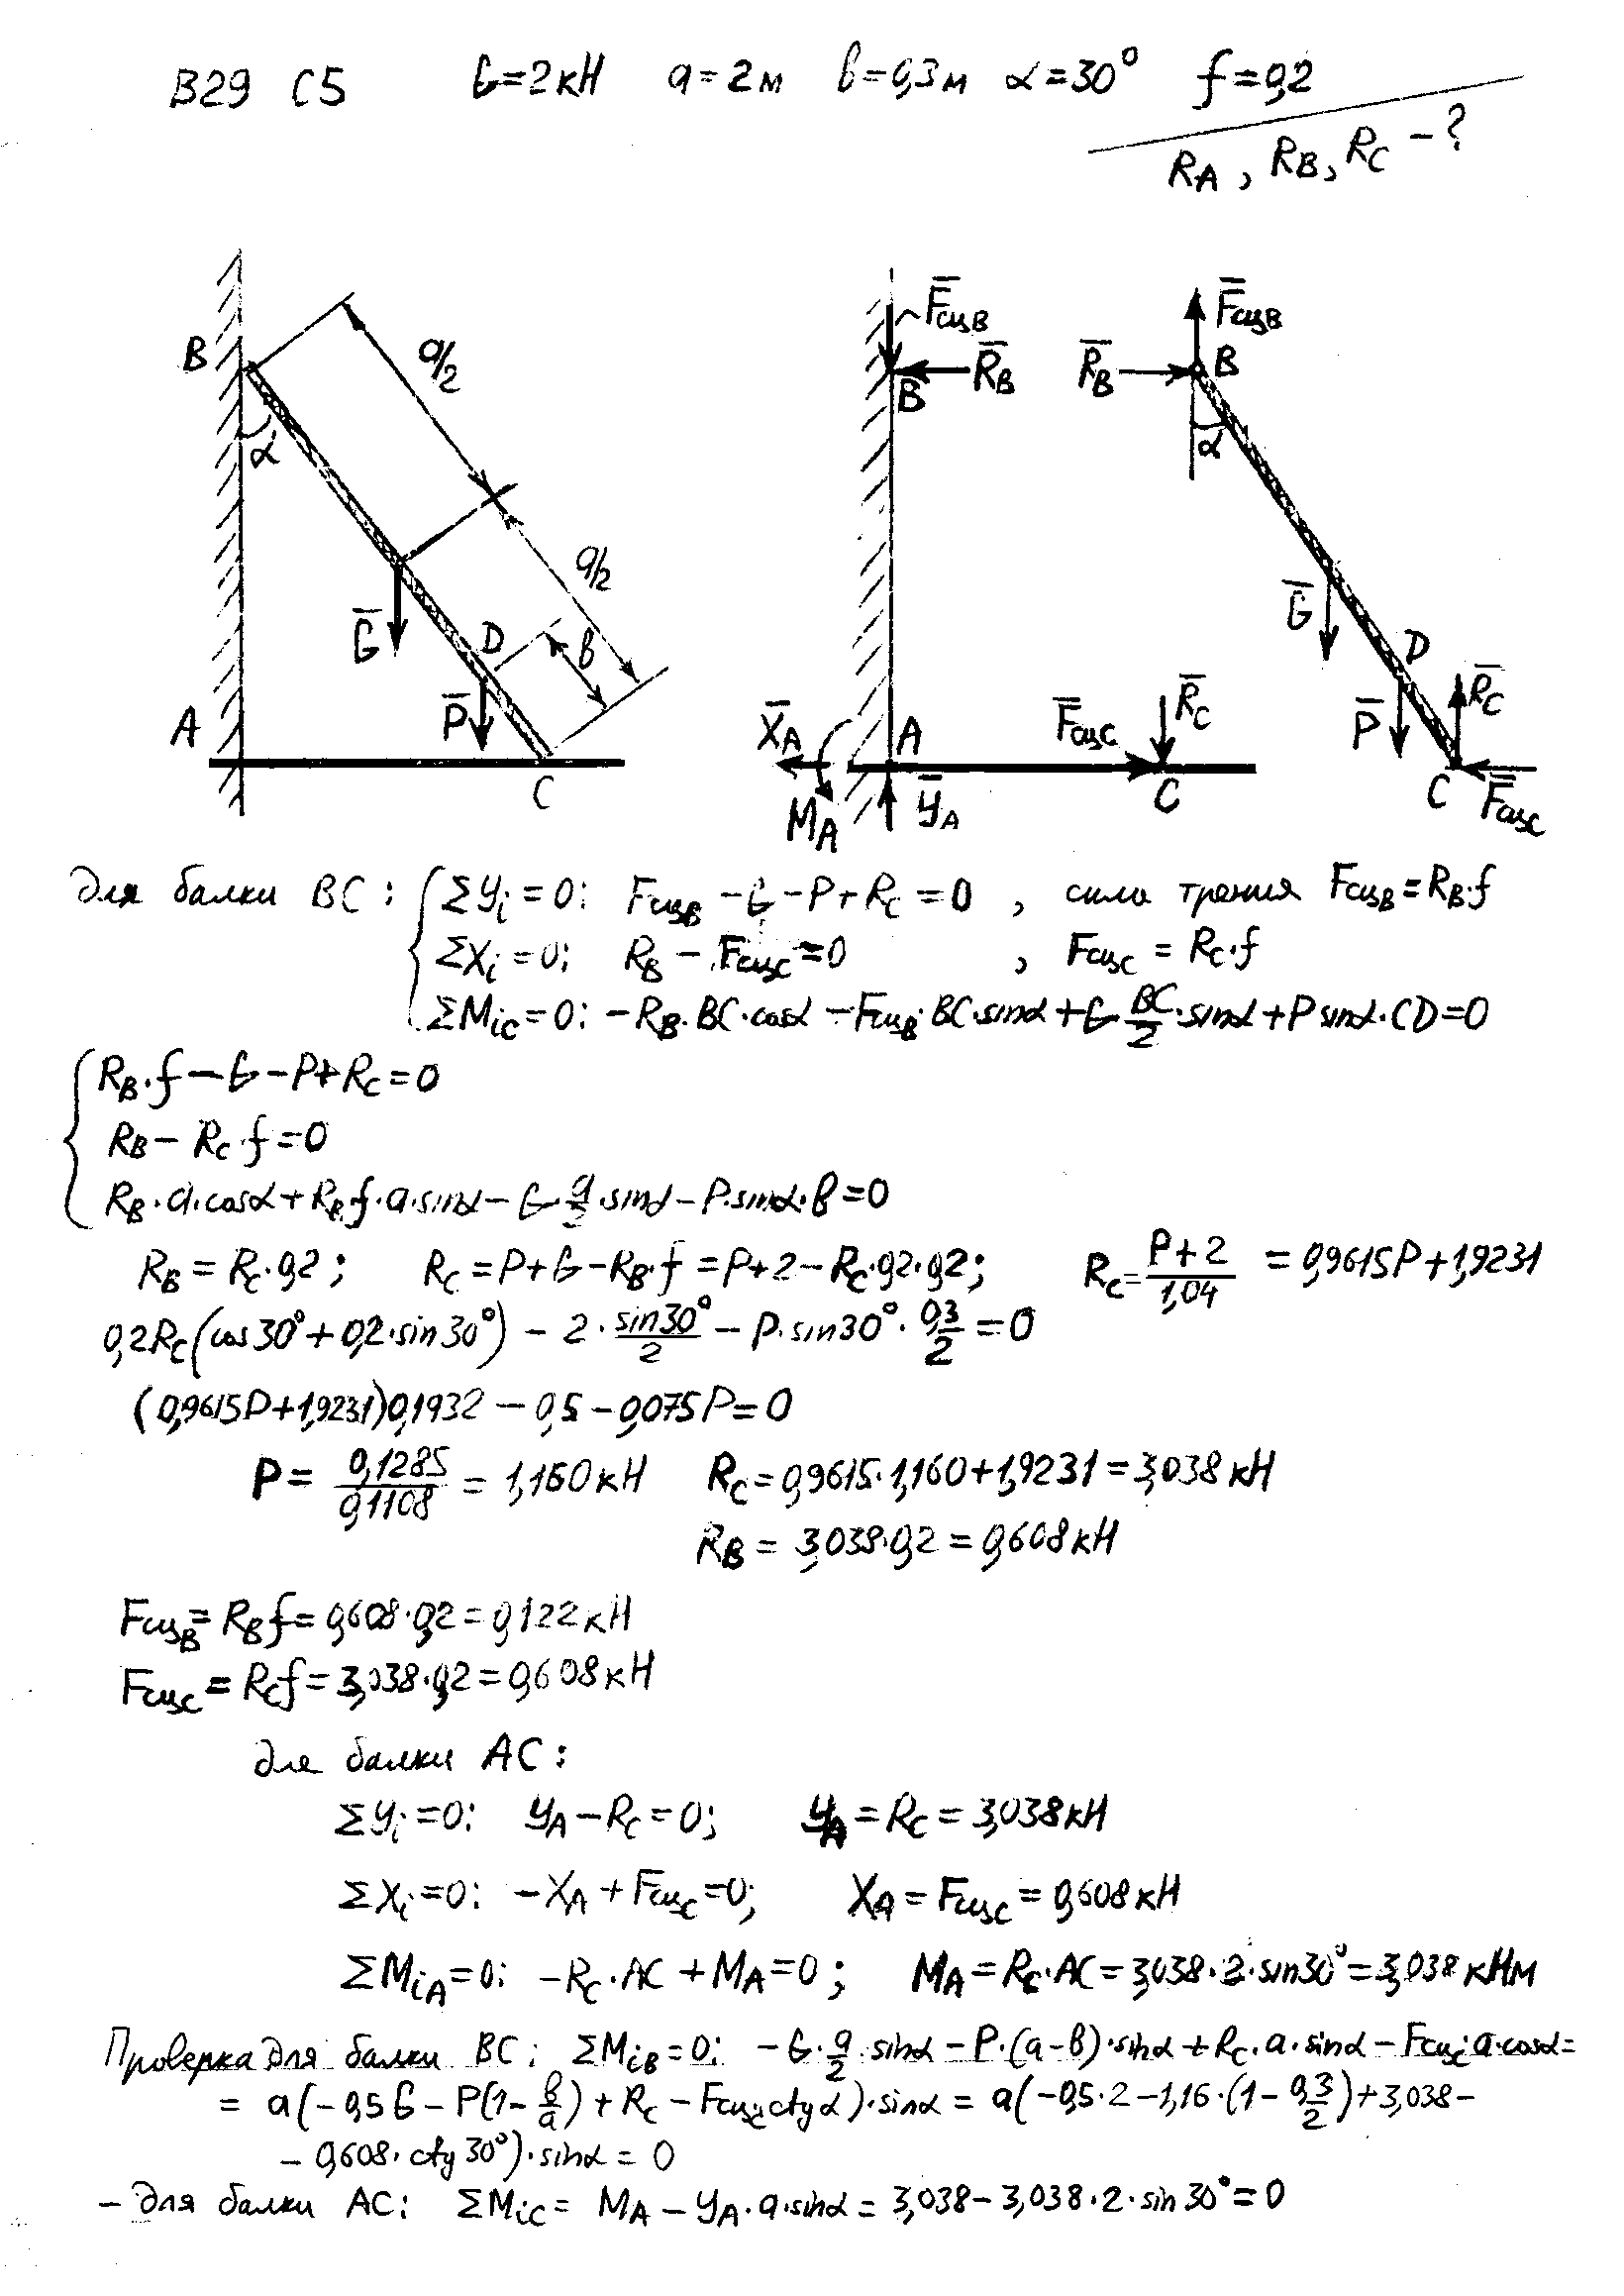 В29 С5 G=2кН a=2м b=0,3м α=30° f=0,2
R_A, R_B, R_C - ?
B a/2 α G̅ a/2 D b P̅ A C
F̅сцB R̅_B B X̅_A A M_A Y̅_A F̅сцC R̅_C C
F̅сцB R̅_B B α G̅ D P̅ R̅_C C F̅сцC
для балки BC: { ΣYi=0: FсцB - G - P + R_C = 0 , сила трения FсцB = R_B·f
ΣXi=0: R_B - FсцC = 0 , FсцC = R_C·f
ΣMiC=0: -R_B·BC·cosα - FсцB·BC·sinα + G·BC/2·sinα + P sinα·CD=0
{ R_B·f - G - P + R_C = 0
R_B - R_C·f = 0
R_B·a·cosα + R_B·f·a·sinα - G·a/2·sinα - P·sinα·b = 0
R_B = R_C·0,2; R_C = P+G-R_B·f = P+2-R_C·0,2·0,2; R_C = (P+2)/1,04 = 0,9615P+1,9231
0,2R_C(cos30°+0,2·sin30°) - 2·sin30°/2 - P·sin30°·0,3/2 = 0
(0,9615P+1,9231)0,1932 - 0,5 - 0,075P = 0
P = 0,1285/0,1108 = 1,160кН R_C = 0,9615·1,160+1,9231 = 3,038кН
R_B = 3,038·0,2 = 0,608кН
FсцB = R_B f = 0,608·0,2 = 0,122кН
FсцC = R_C f = 3,038·0,2 = 0,608кН
для балки AC:
ΣYi=0: Y_A - R_C = 0; Y_A = R_C = 3,038кН
ΣXi=0: -X_A + FсцC = 0; X_A = FсцC = 0,608кН
ΣMiA=0: -R_C·AC + M_A = 0; M_A = R_C·AC = 3,038·2·sin30° = 3,038 кНм
Проверка для балки BC: ΣMiB=0: -G·a/2·sinα - P·(a-b)·sinα + R_C·a·sinα - FсцC·a·cosα =
= a(-0,5G - P(1-b/a) + R_C - FсцC ctgα)·sinα = a(-0,5·2 - 1,16·(1-0,3/2) + 3,038 -
- 0,608·ctg30°)·sinα = 0
- для балки AC: ΣMiC = M_A - Y_A·a·sinα = 3,038 - 3,038·2·sin30° = 0